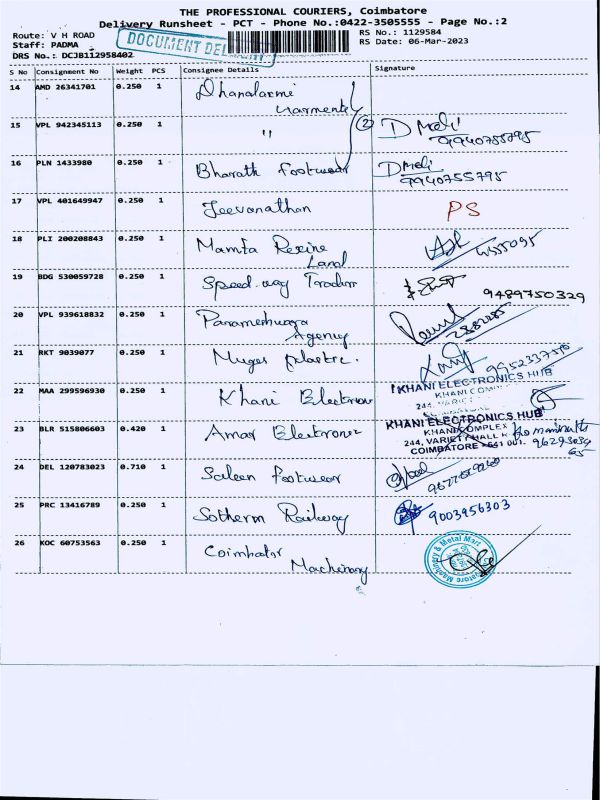 THE PROFESSIONAL COURIERS, Coimbatore
Delivery Runsheet - PCT - Phone No.:0422-3505555 - Page No.:2
Route: V H ROAD
RS No.: 1129584
Staff: PADMA
DOCUMENT
RS Date: 06-Mar-2023
DRS No.: DCJB112958402
S No Consignment No Weight PCS Consignee Details Signature
14 AMD 26341701 0.250 1 Dhanalaxmi
Garments
15 VPL 942345113 0.250 1 " (2) D Mali
9940755795
16 PLN 1433980 0.250 1 Bharath footwear D Mali
9940755795
17 VPL 401649947 0.250 1 Jeevanathan PS
18 PLI 200208843 0.250 1 Mamta Rexine
Land
19 BDG 530059728 0.250 1 Speed way Traders
9489750329
20 VPL 939618832 0.250 1 Parameshwara
Agency
21 RKT 9039077 0.250 1 Muges plastic.
22 MAA 299596930 0.250 1 Khani Electron
KHANI ELECTRONICS HUB
23 BLR 515806603 0.420 1 Amar Electronic
KHANI ELECTRONICS HUB
KHANI COMPLEX
244, VARIETY HALL R
COIMBATORE - 641 001.
24 DEL 120783023 0.710 1 Saleen footwear
25 PRC 13416789 0.250 1 Sothern Railway 9003956303
26 KOC 60753563 0.250 1 Coimbator
Machinery
Coimbatore Machinery & Metal Mart